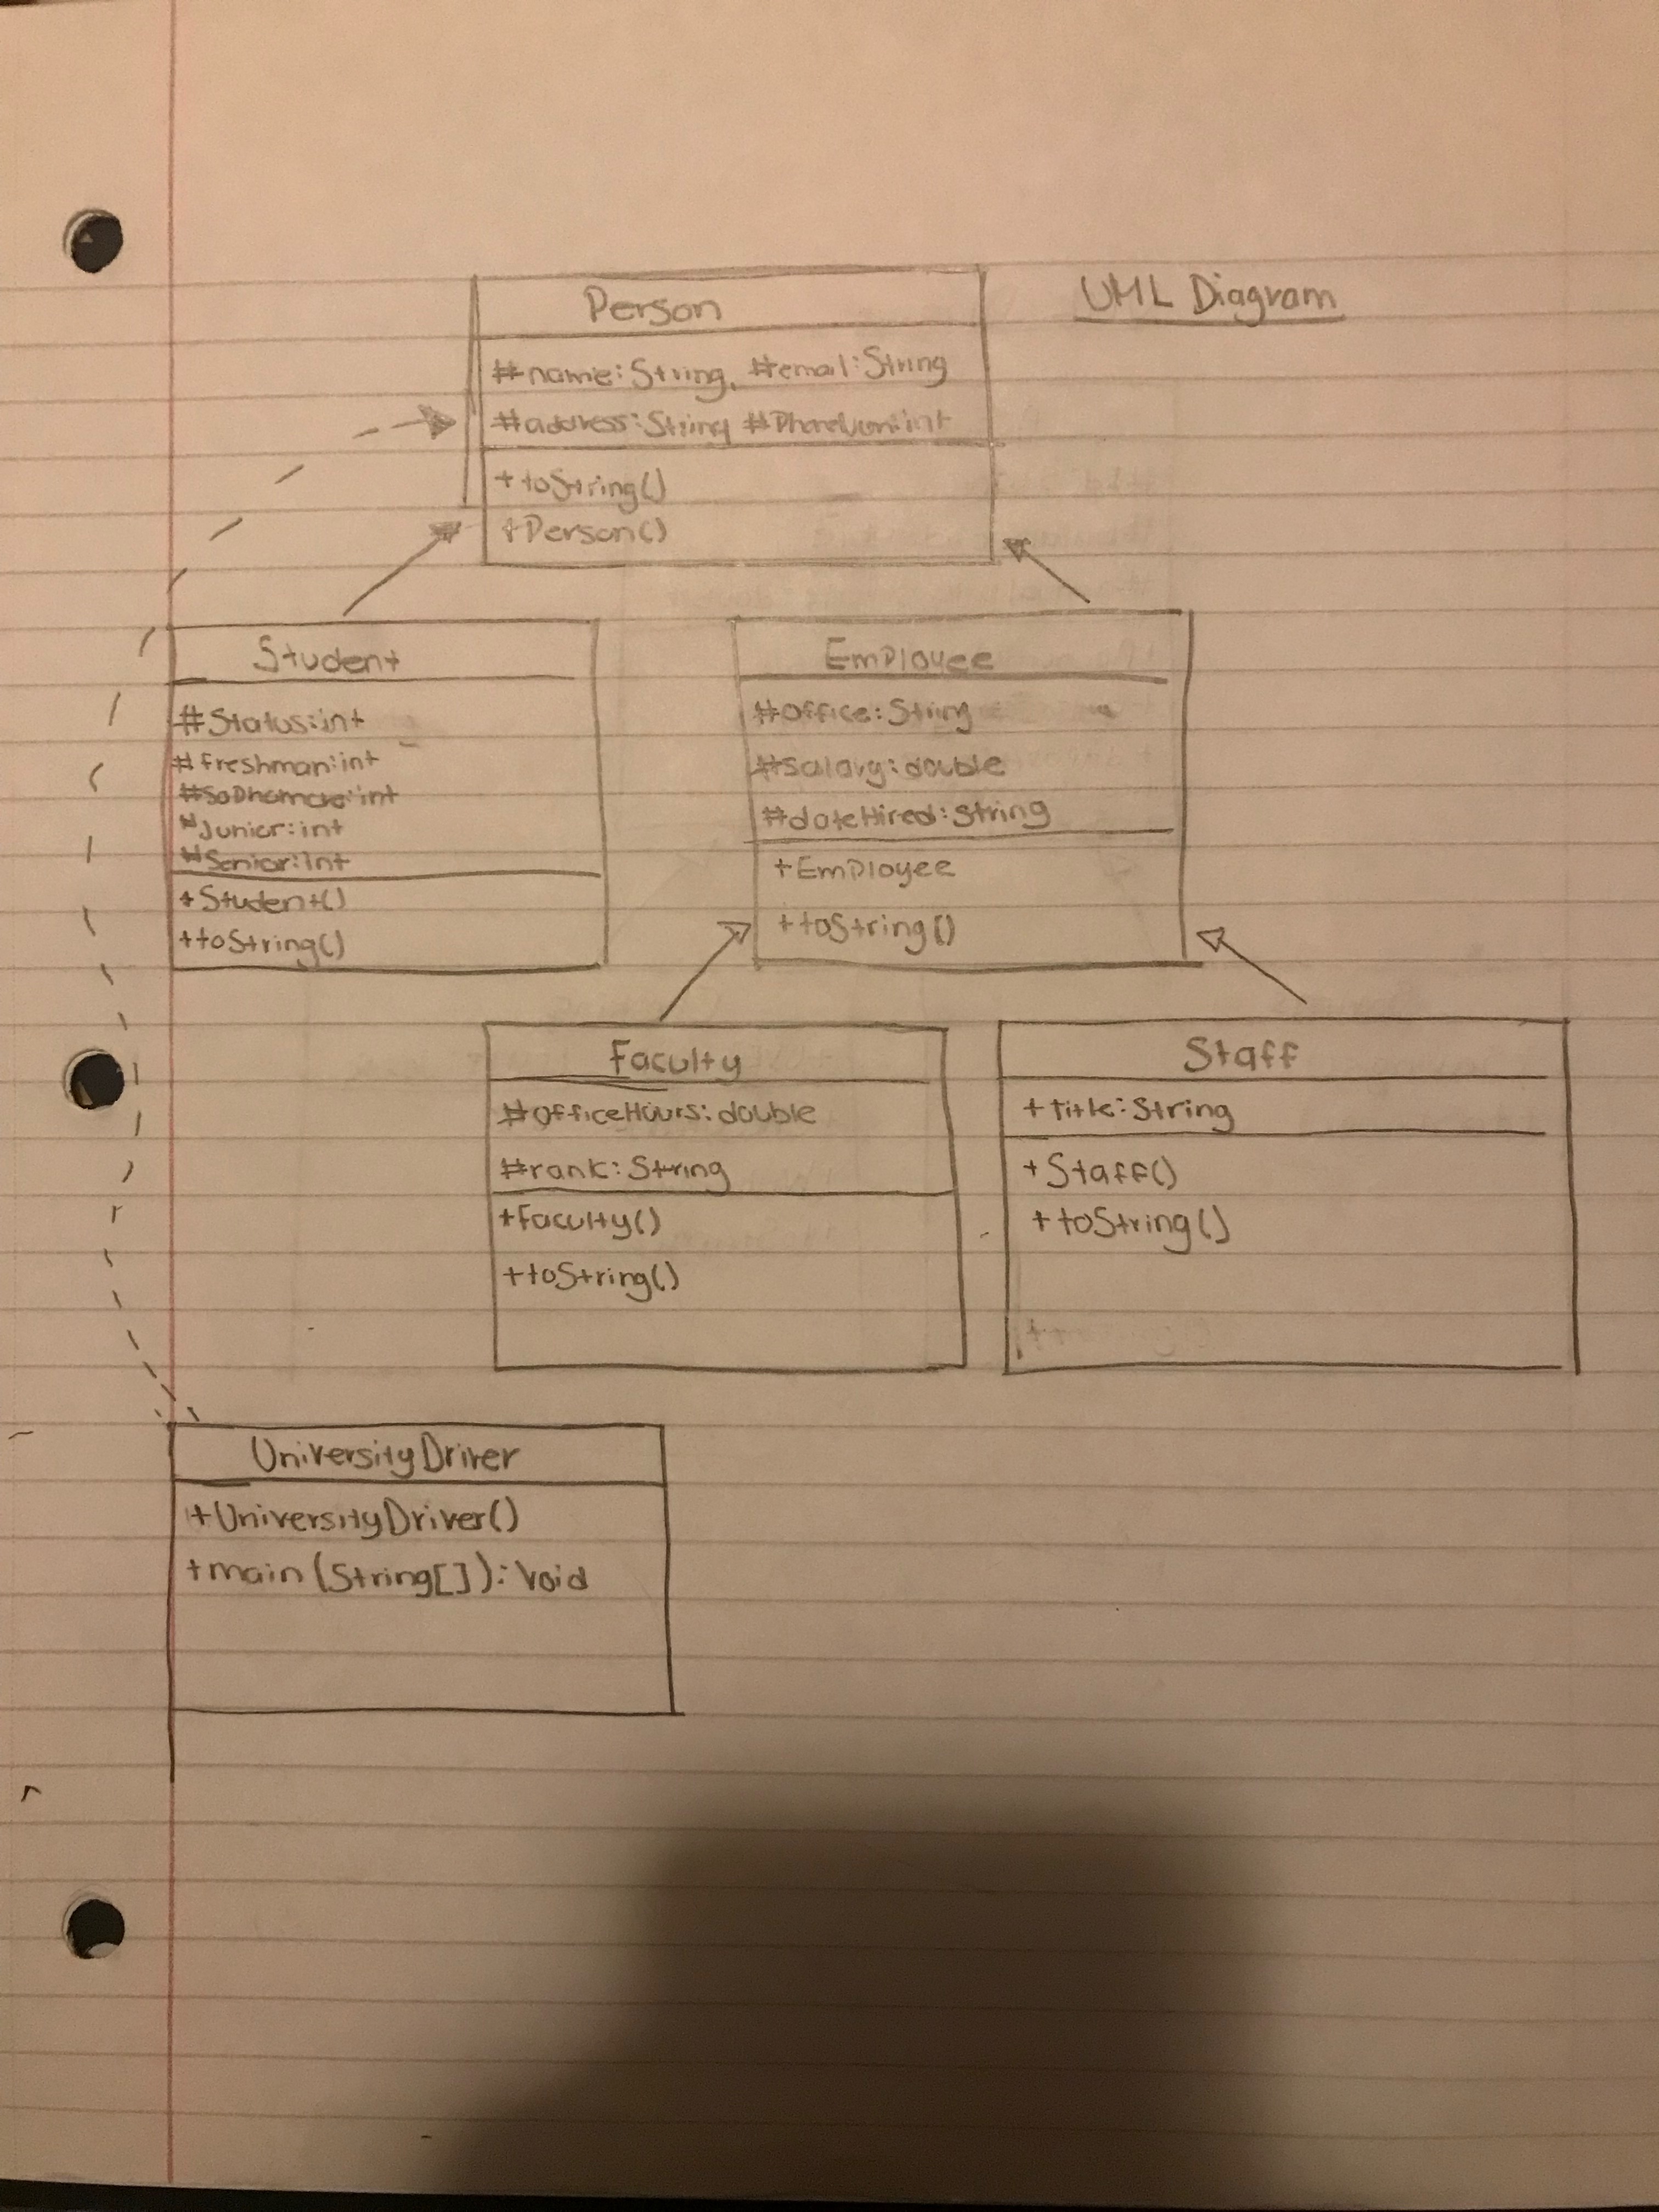 Person
UML Diagram
#name:String, #email:String
#address:String #PhoneNum:int
+toString()
+Person()
Student
#Status:int
#freshman:int
#SoPhomore:int
#Junior:int
#Senior:int
+Student()
+toString()
EmPloyee
#office:String
#salary:double
#dateHired:String
+EmPloyee
+toString()
Faculty
#officeHours:double
#rank:String
+Faculty()
+toString()
Staff
+title:String
+Staff()
+toString()
UniversityDriver
+UniversityDriver()
+main(String[]):Void